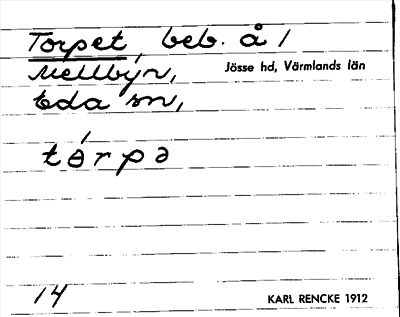 Torpet, beb. å /
Mellbyn,
Jösse hd, Värmlands län
Eda sn,
tɵ́rpə
14
KARL RENCKE 1912